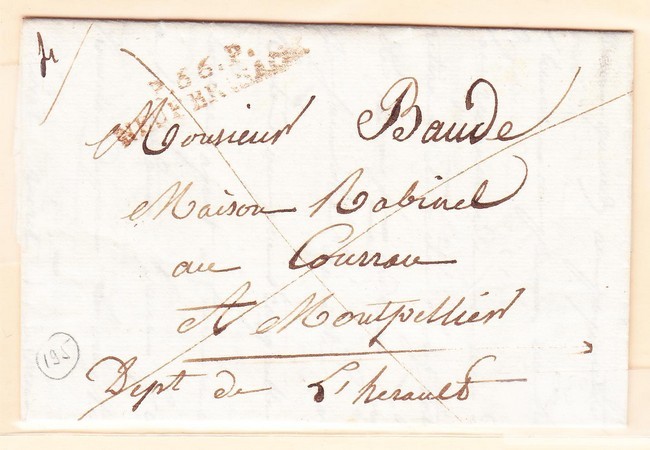 fr
P.66.P.
Monsieur Baude
Maison Rabinel
au Courrau
A Montpellier
195
Dept de L'herault